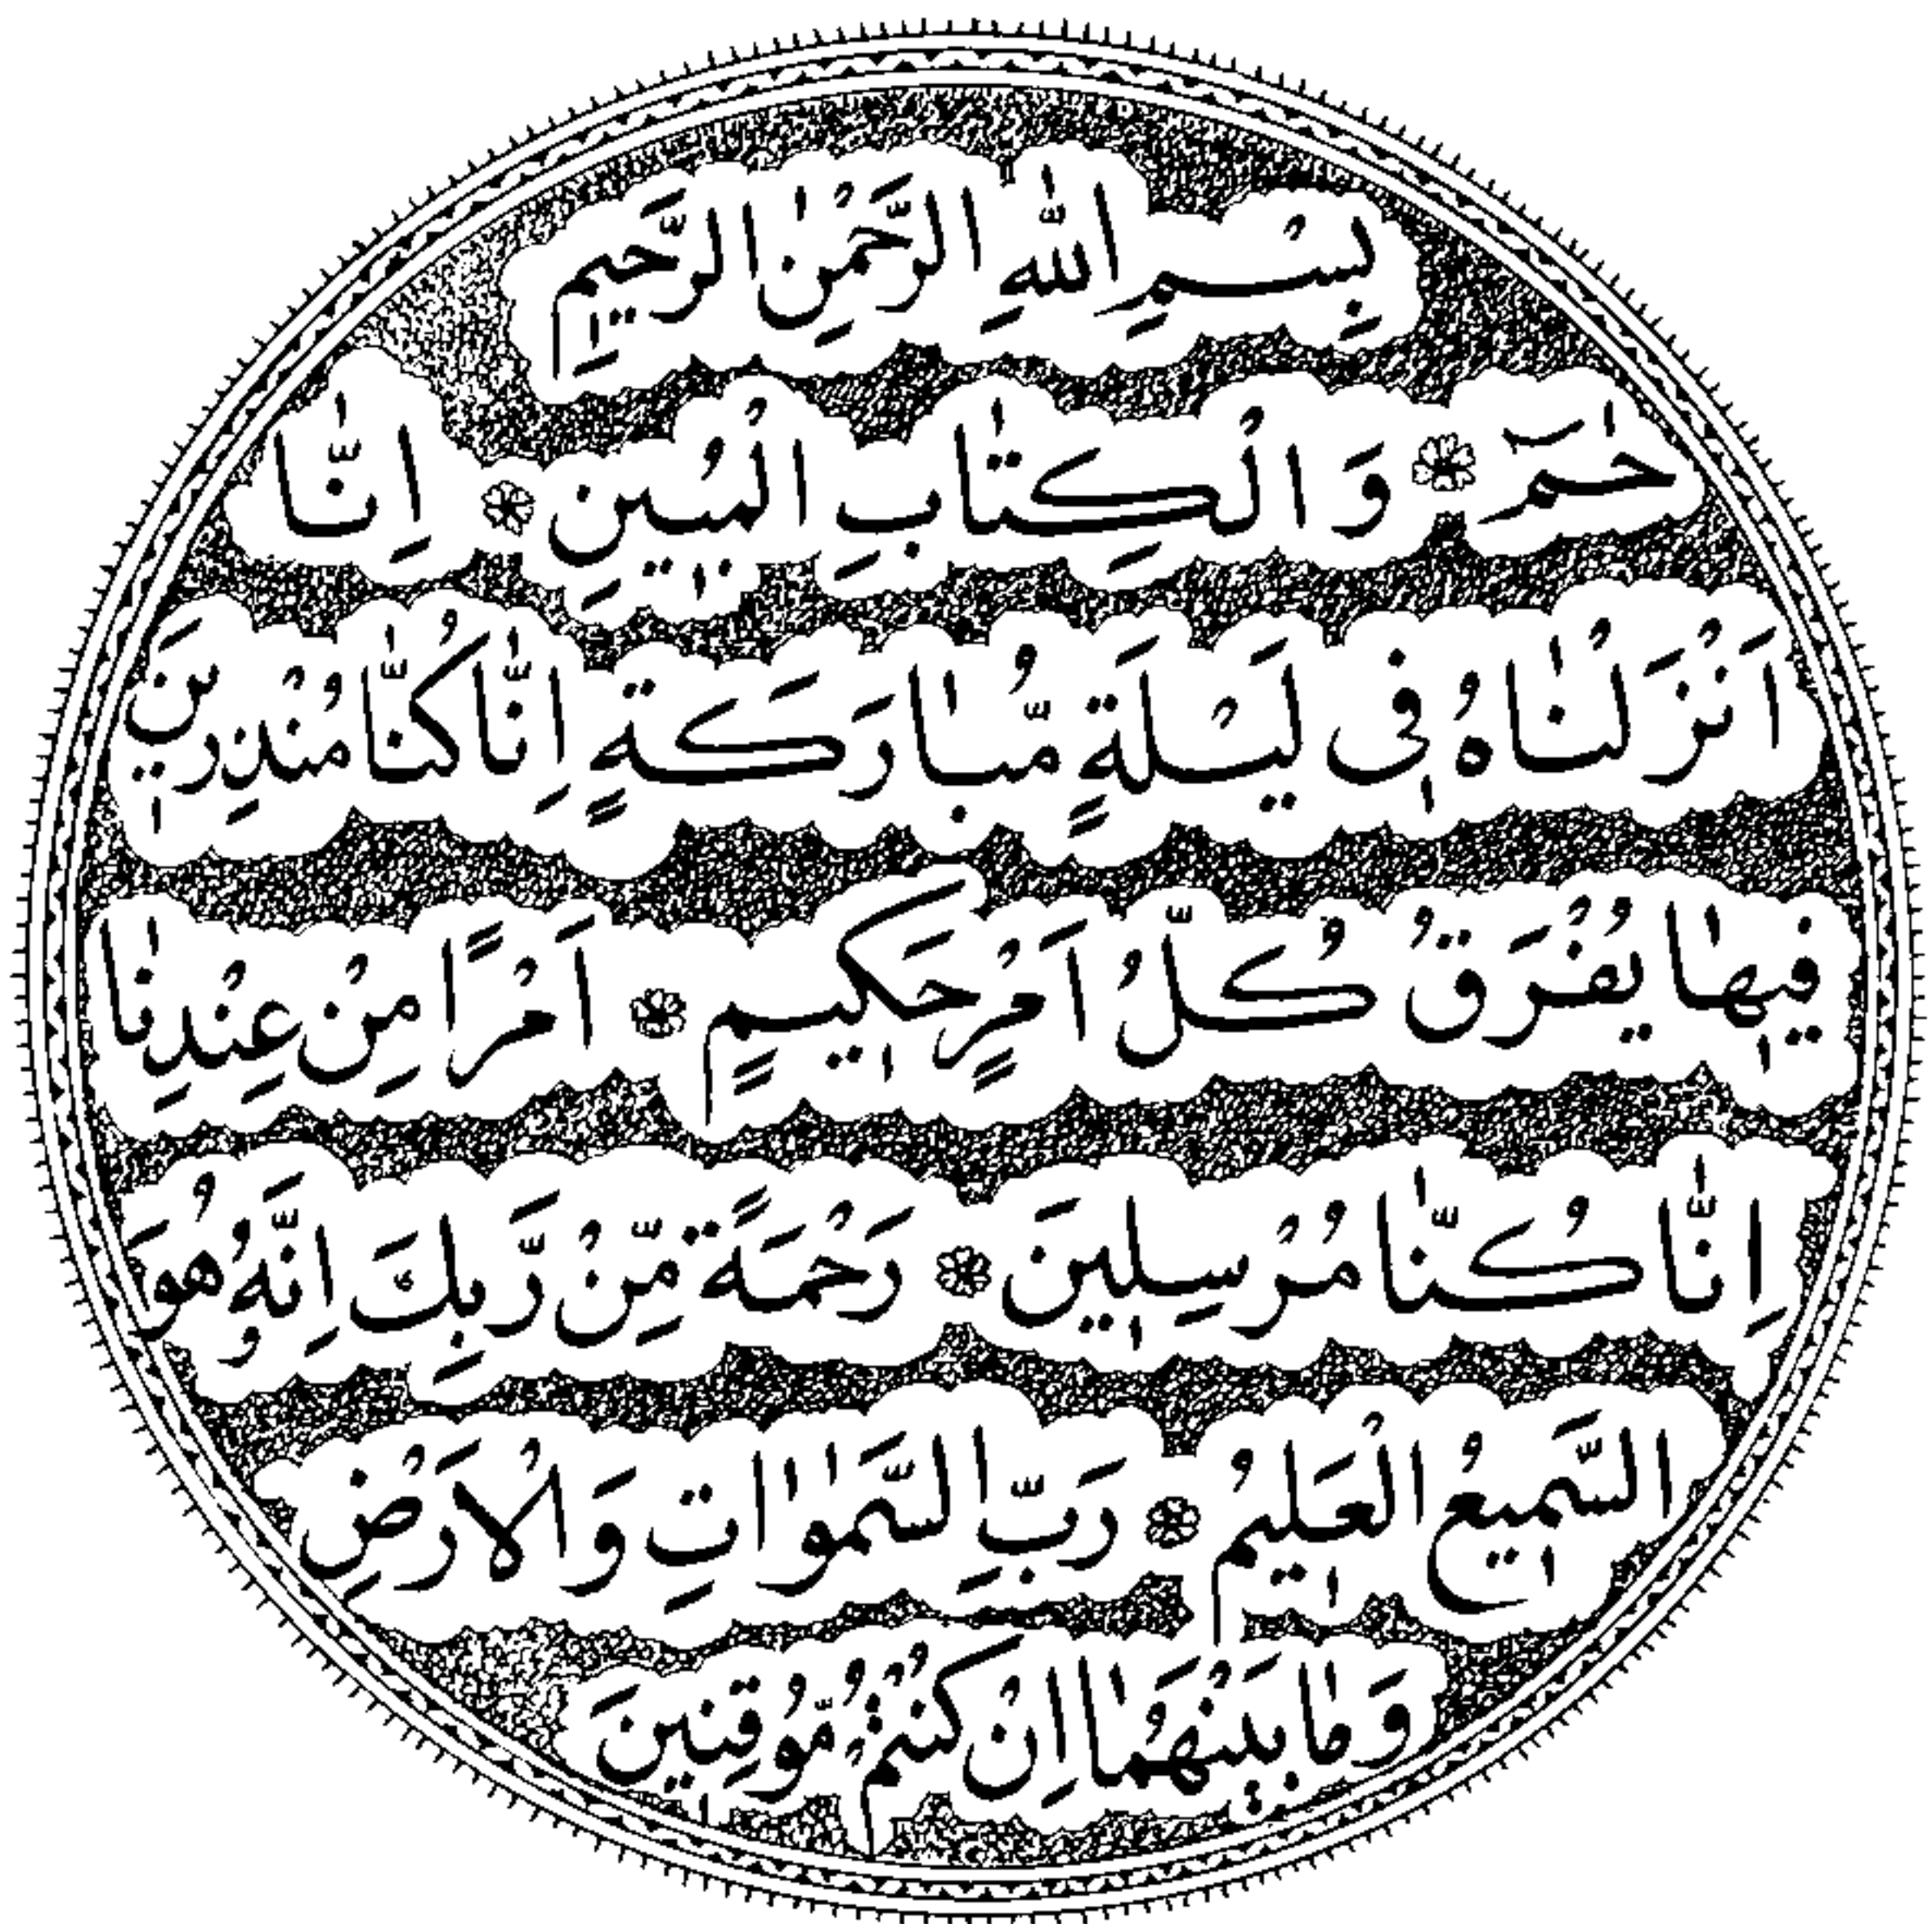 بِسْمِ اللّٰهِ الرَّحْمٰنِ الرَّحِيمِ
حٰمٓ ۞ وَ الْكِتٰابِ الْمُبِينِ ۞ اِنّٰا
اَنْزَلْنٰاهُ فِى لَيْلَةٍ مُّبٰارَكَةٍ اِنّٰا كُنّٰا مُنْذِرِينَ
فِيهٰا يُفْرَقُ كُلُّ اَمْرٍ حَكِيمٍ ۞ اَمْرًا مِنْ عِنْدِنٰا
اِنّٰا كُنّٰا مُرْسِلِينَ ۞ رَحْمَةً مِّنْ رَّبِكَ اِنَّهُ هُوَ
السَّمِيعُ الْعَلِيمُ ۞ رَبِّ السَّمٰوٰاتِ وَالْاَرْضِ
وَمٰا بَيْنَهُمٰا اِنْ كُنْتُمْ مُّوقِنِينَ